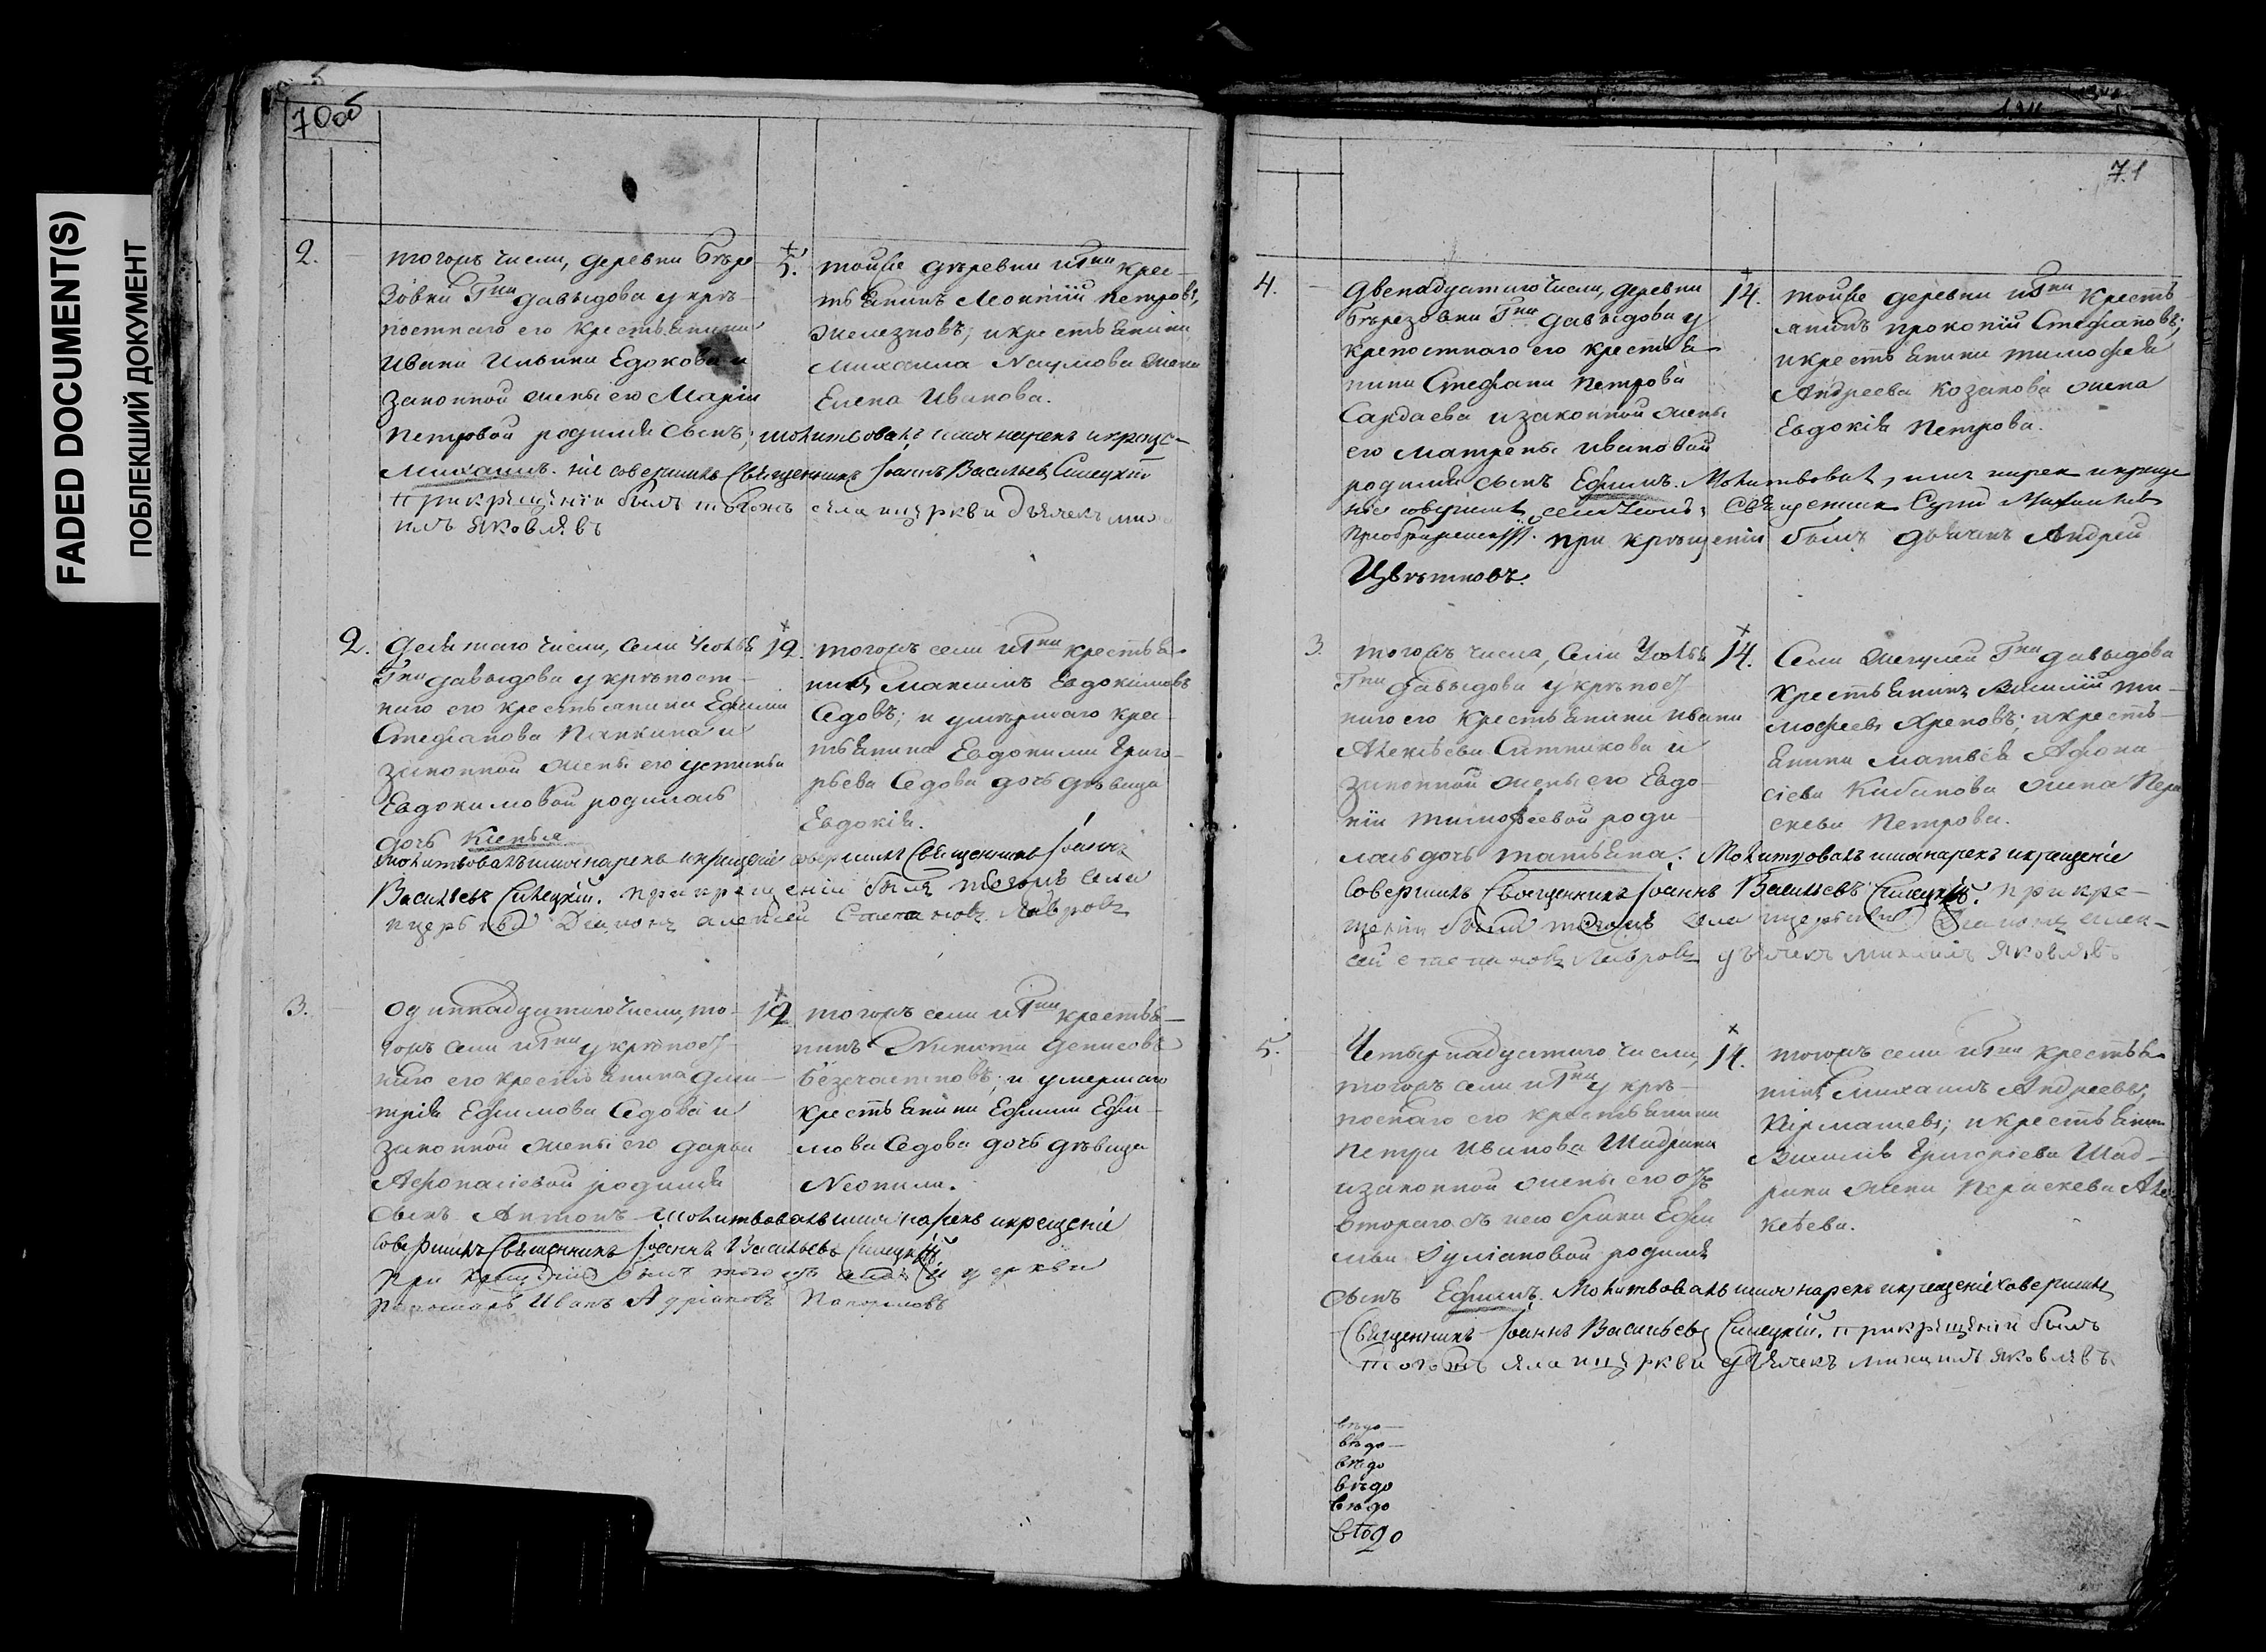 FADED DOCUMENT(S)
ПОБЛЕКШИЙ ДОКУМЕНТ
70об
2.
тогожъ числа, деревни Бѣре
зовки Гна Давыдова у крѣ-
постнаго его крестьянина
Ивана Ильина Едокова и
законной жены его Маріи
Петровой родился сынъ; молитвовалъ имя нарекъ и креще-
Михаилъ. ніе совершилъ Священникъ Іоаннъ Васильевъ Синецкій
при крѣщеніи былъ тогожъ села и цѣркви дьячекъ миха
илъ яковлѣвъ
5.
тойже дѣревни и Гна крес-
тьянинъ Мокѣй Петровъ,
Железновъ; и крестьянина
Михаила Наумова жена
Елена Иванова.
2.
Девятаго числа, села Усолья
Гна Давыдова у крѣпост-
наго его крестьянина Ефима
Стефанова Папкина и
законной жены его Устиньи
Евдокимовой родилась
дочь Ксенья
молитвовалъ имя нарекъ и крещеніе совершилъ Священникъ Іоаннъ
Васильевъ Синецкій. при крещеніи былъ тогожъ села
и церкви Діаконъ алексей Степановъ Лавровъ
12.
тогожъ села и Гна крестья-
нинъ Максимъ Евдокимовъ
Седовъ; и умѣршаго крес-
тьянина Евдокима Григо-
рьева Седова дочь дѣвица
Евдокія.
3.
Одиннадцатаго числа, то-
гожъ села и Гна у крѣпост
наго его крестьянина Дми-
трія Ефимова Седова и
законной жены его Дарьи
Афонасіевой родился
сынъ Антонъ молитвовалъ имя нарекъ и крещеніе
совершилъ Священникъ Іоаннъ Васильевъ Синецкій
при крещеніи былъ тогожъ села и церкви
пономарь Иванъ Адріановъ
12
тогожъ села и Гна крестья-
нинъ Никита Денисовъ
Безечастновъ; и умершаго
крестьянина Ефима Ефи-
мова Седова дочь дѣвица
Неонила.
71
4.
Двенадцатаго числа, деревни
Бѣрезовки Гна Давыдова у
крепостнаго его крестья-
нина Стефана Петрова
Сардаева и законной жены
его Матрены Ивановой
родился сынъ Ефимъ. Молитвовалъ, имя нарек и креще
ніе совершилъ села Священник
Преображенскій. при крѣщеніи былъ дьячекъ Андрей
Цвѣтковъ.
14.
тойже деревни и Гна кресть-
янинъ Прокопій Стефановъ;
и крестьянина Тимофея
Андреева Козакова жена
Евдокія Петрова.
3.
тогожъ числа, Села Усолья
Гна Давыдова у крѣпост
наго его крестьянина Ивана
Алексѣева Ситникова и
законной жены его Евдо-
кіи Тимофѣевой роди-
лась дочь Татьяна. Молитвовалъ имя нарекъ и крещеніе
Совершилъ Священникъ Іоаннъ Васильевъ Синецкій. при кре-
щеніи были тогожъ села и церкви Діаконъ алек-
сей степановъ Лавровъ дьячекъ михаилъ яковлѣвъ
14.
Села Жегулей Гна Давыдова
крестьянинъ Василій Ти-
мофеевъ Хреновъ; и кресть-
янина Матвѣя Афона
сіева Кабанова жена Пера
скева Петрова.
5.
Четырнадцатаго числа,
тогожъ села и Гна у крѣ-
поснаго его крестьянина
Петра Иванова Шадрина
и законной жены его отъ
втораго съ нею брака Ефи
міи Іуліановой родился
сынъ Ефимъ. Молитвовалъ имя нарекъ и крещеніе совершилъ
Священникъ Іоаннъ Васильевъ Синецкій. при крѣщѣніи былъ
тогожъ села и цѣркви дьячекъ михаилъ яковлѣвъ.
14.
тогожъ села и Гна крестья-
нинъ Михаилъ Андреевъ,
Кирмашевъ; и крестьянина
Василія Григоріева Шад-
рина жена Параскева Але
ксѣева.
вѣдо
вѣдо
вѣдо
вѣдо
вѣдо
вѣдо